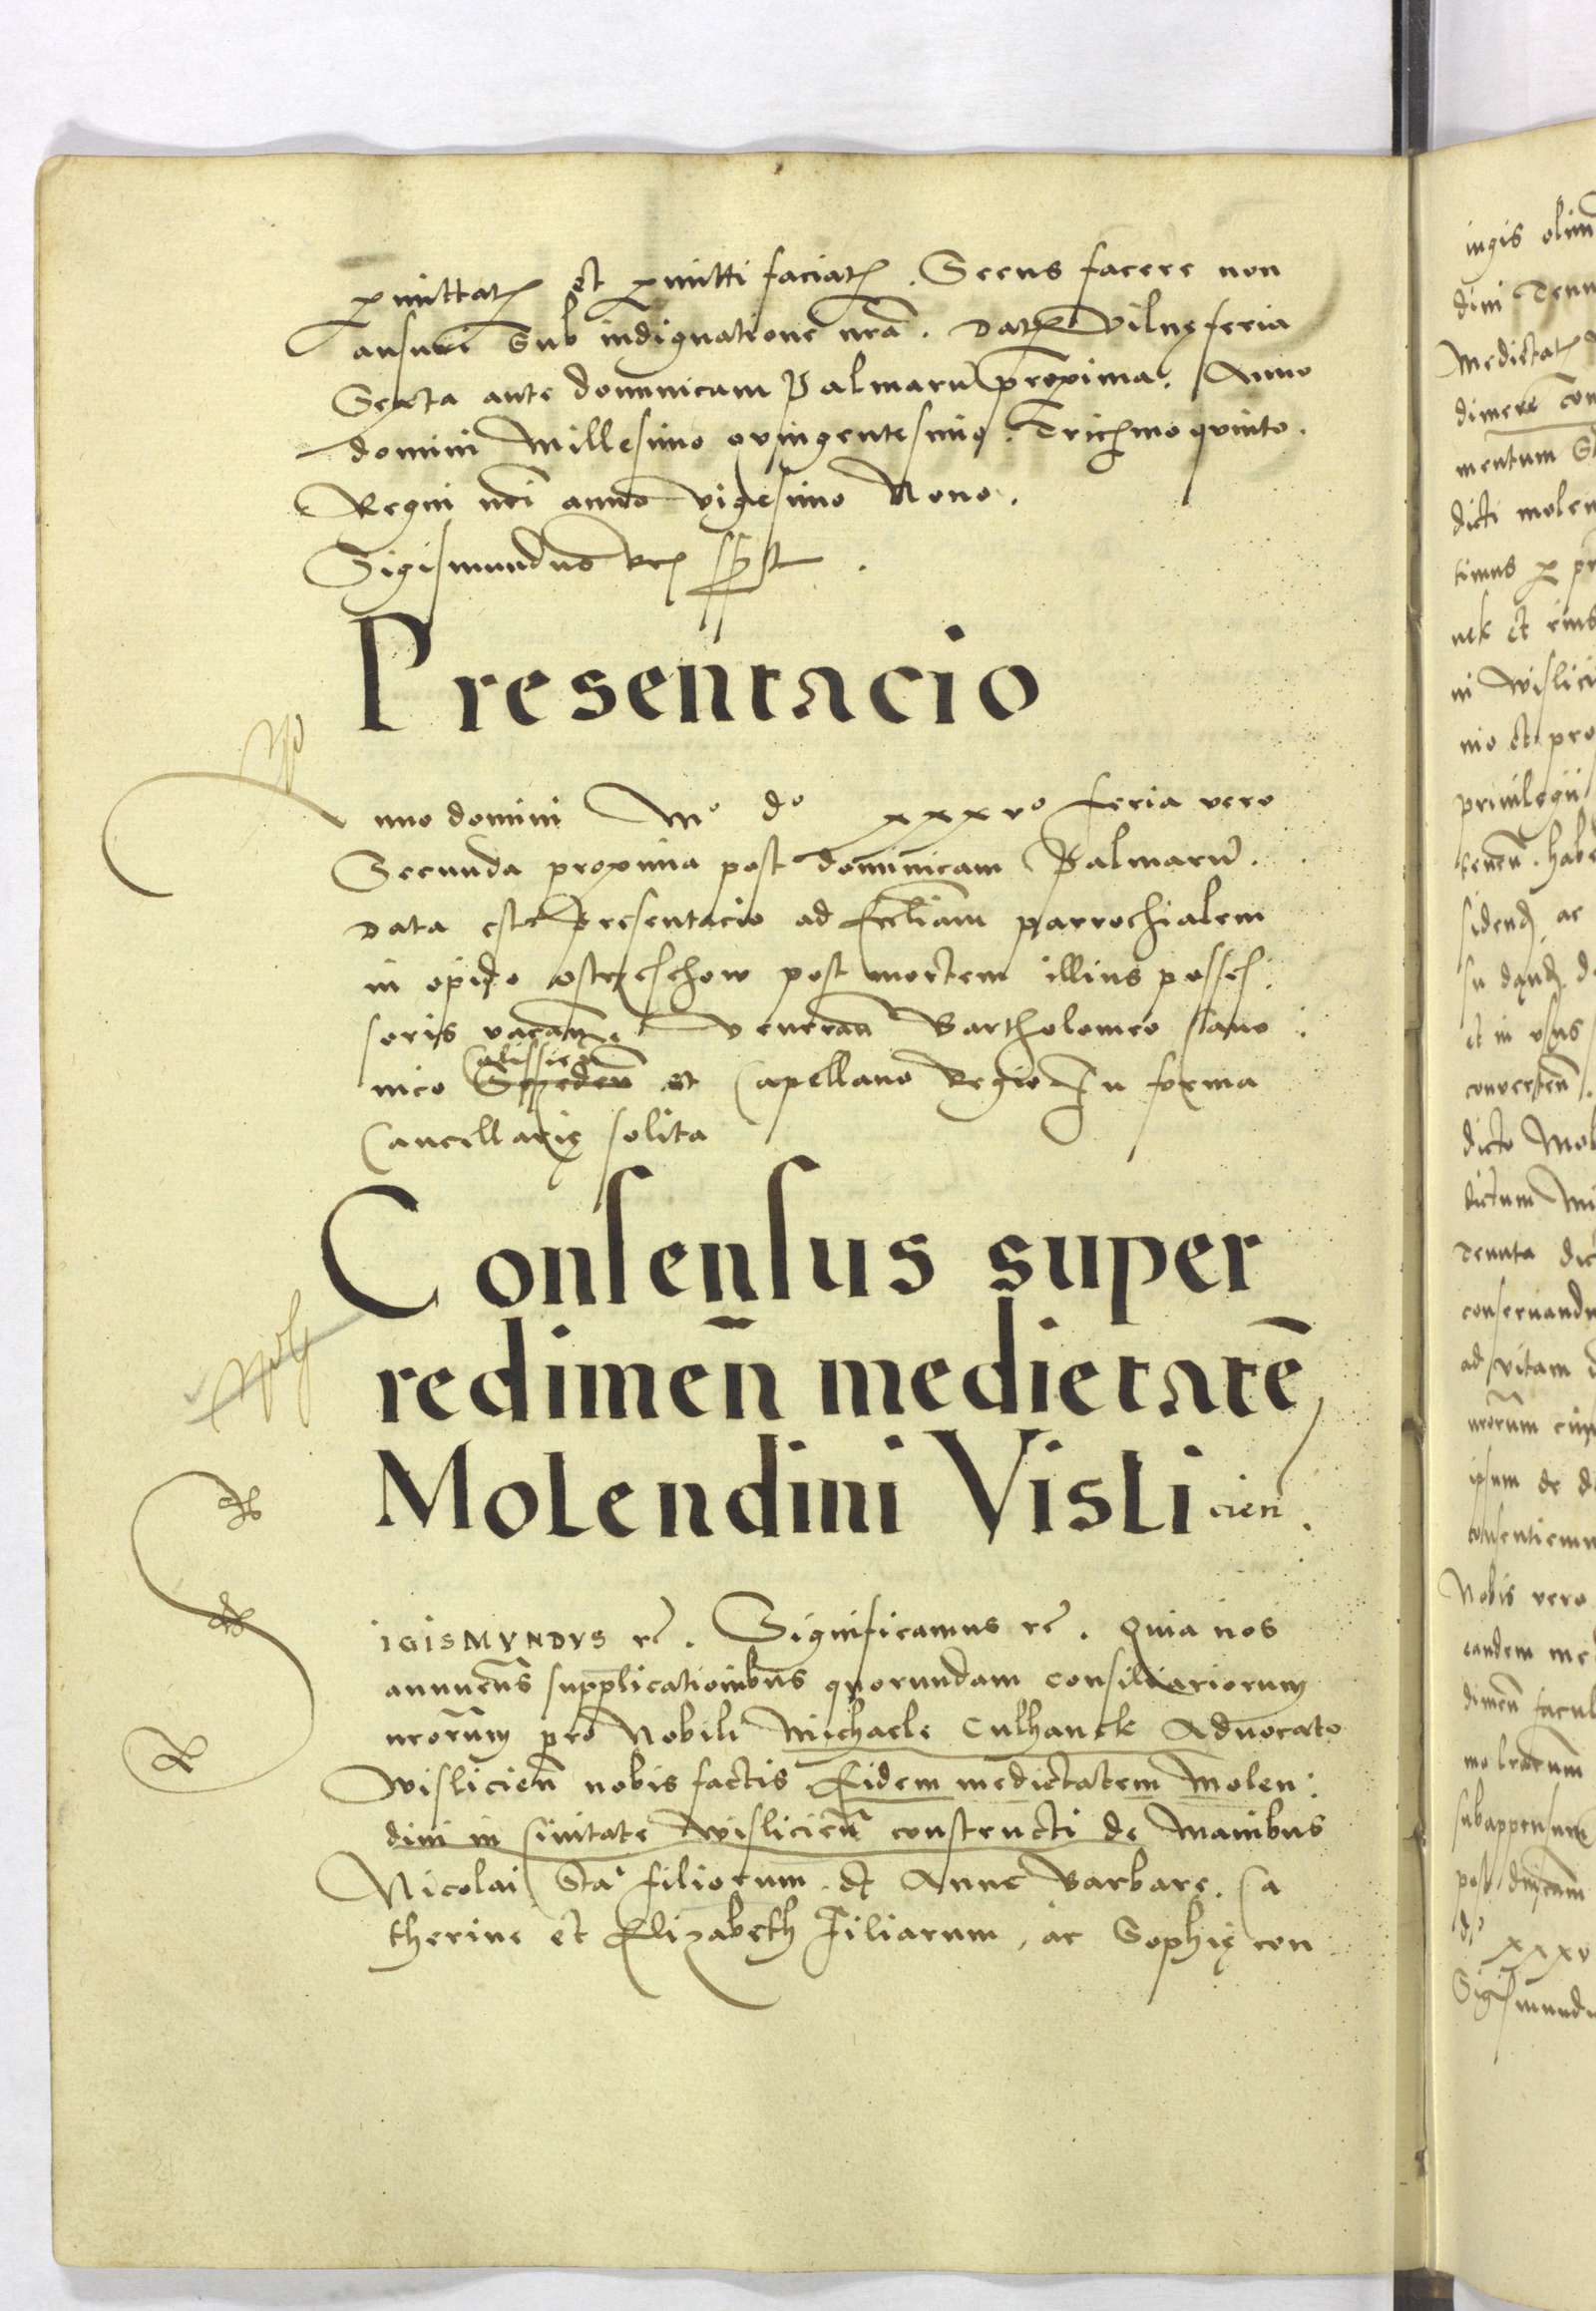 permittat[is] et permitti faciat[is]. Secus facere non
ausuri Sub indignatione nrã. Dat[um] Vilnę feria
Sexta ante dominicam Palmarũ proxima. Anno
domini Millesimo quingentesimo. Tricesimo quinto.
Regni nri anno vigesimo Nono.
Sigismundus Rex sspt.
Presentacio
Anno domini Mo do xxxvo feria vero
Secunda proxima post dominicam Palmarũ.
Data est Presentacio ad Ecclãm parrochialem
in opido ostrzeschow post mortem illius posses:
soris vacañ. Veneran Bartholomeo Cano:
nico Calissieñ et Capellano Regio In forma
Cancellarię solita
Consensus super
redimeñ medietatẽ
Molendini Vislicien.
SIGISMVNDVS rc. Significamus rc. Quia nos
annuẽns supplicationibus quorundam consiliariorum
nrorum pro Nobili Michaele Culhanek Aduocato
Wislicieñ nobis factis Eidem medietatem Molen:
dini in Ciuitate Wislicieñ constructi de Manibus
Nicolai Sta: filiorum et Anne Barbarę. Ca
therine et Elizabeth Filiarum, ac Sophię con
ingis olim
Medietat
mentum
dicti molen
ni Wislici
nio et pro
priuilegii
et in vsus
conuerteñ.
dicto Mol
dictum
Tenuta dic
conseruandu
ad vitam
ipsum de
consentiem
Nobis vero
eandem me
dimeñ facul
subappensum
xxxv
Sigismundu